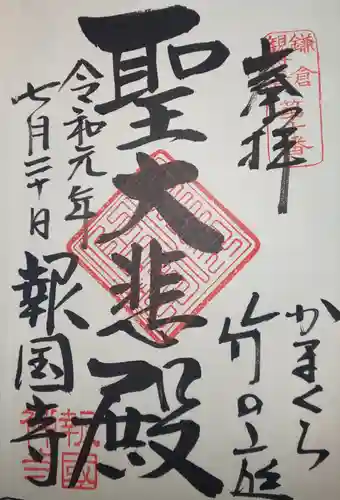 奉拝
鎌倉
かまくら
竹の庭
聖大悲殿
令和元年
七月二十日
報国寺